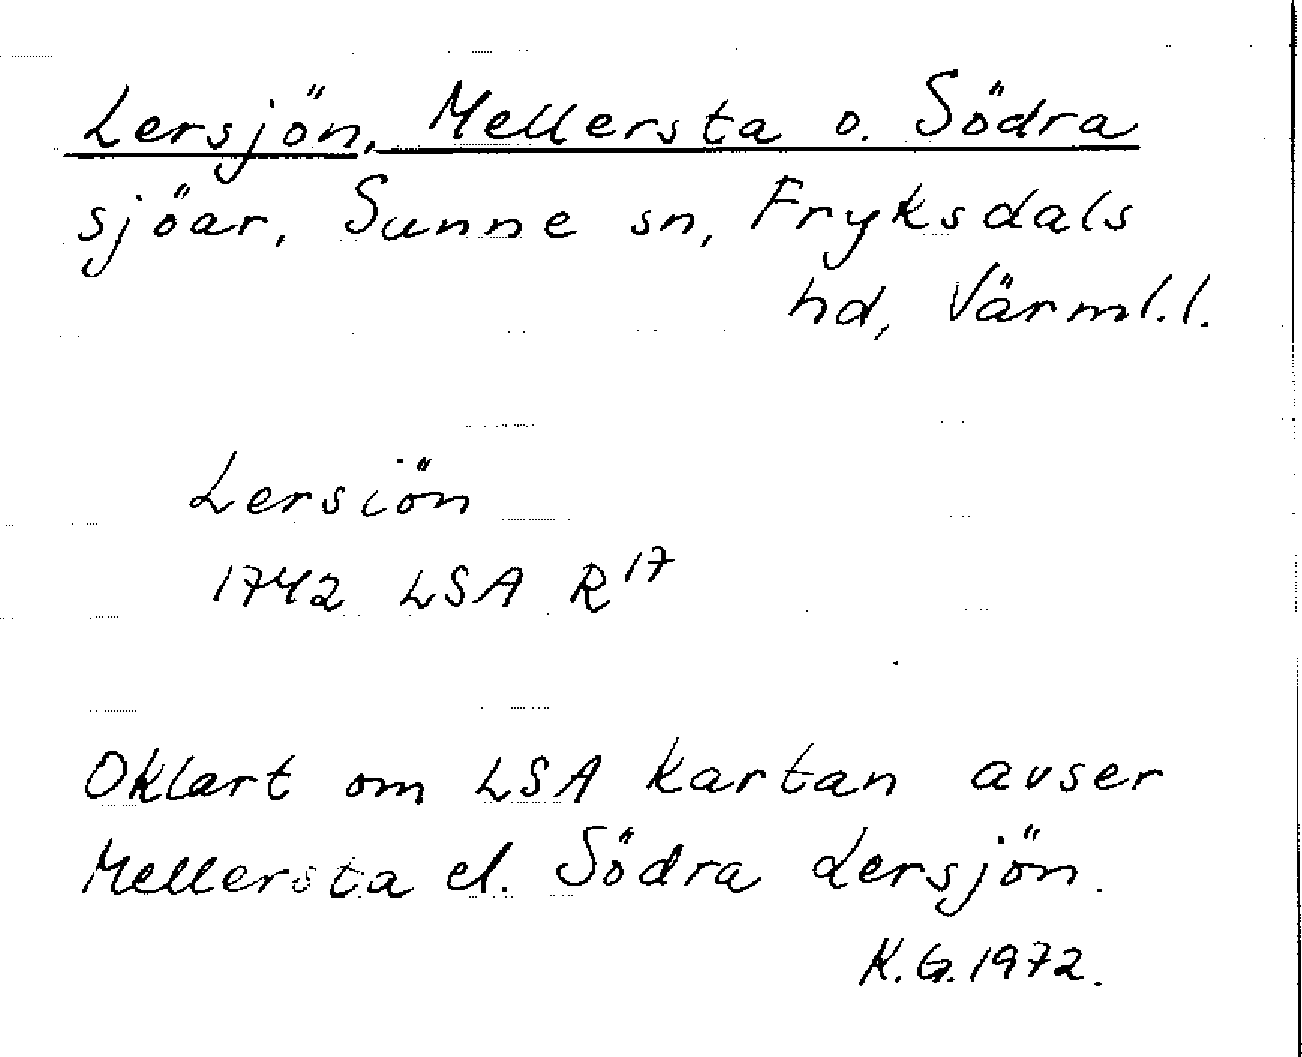 Lersjön, Mellersta o. Södra
sjöar, Sunne sn, Fryksdals
hd, Värml.l.
Lersiön
1742 LSA R17
Oklart om LSA kartan avser
Mellersta el. Södra Lersjön.
K.G.1972.